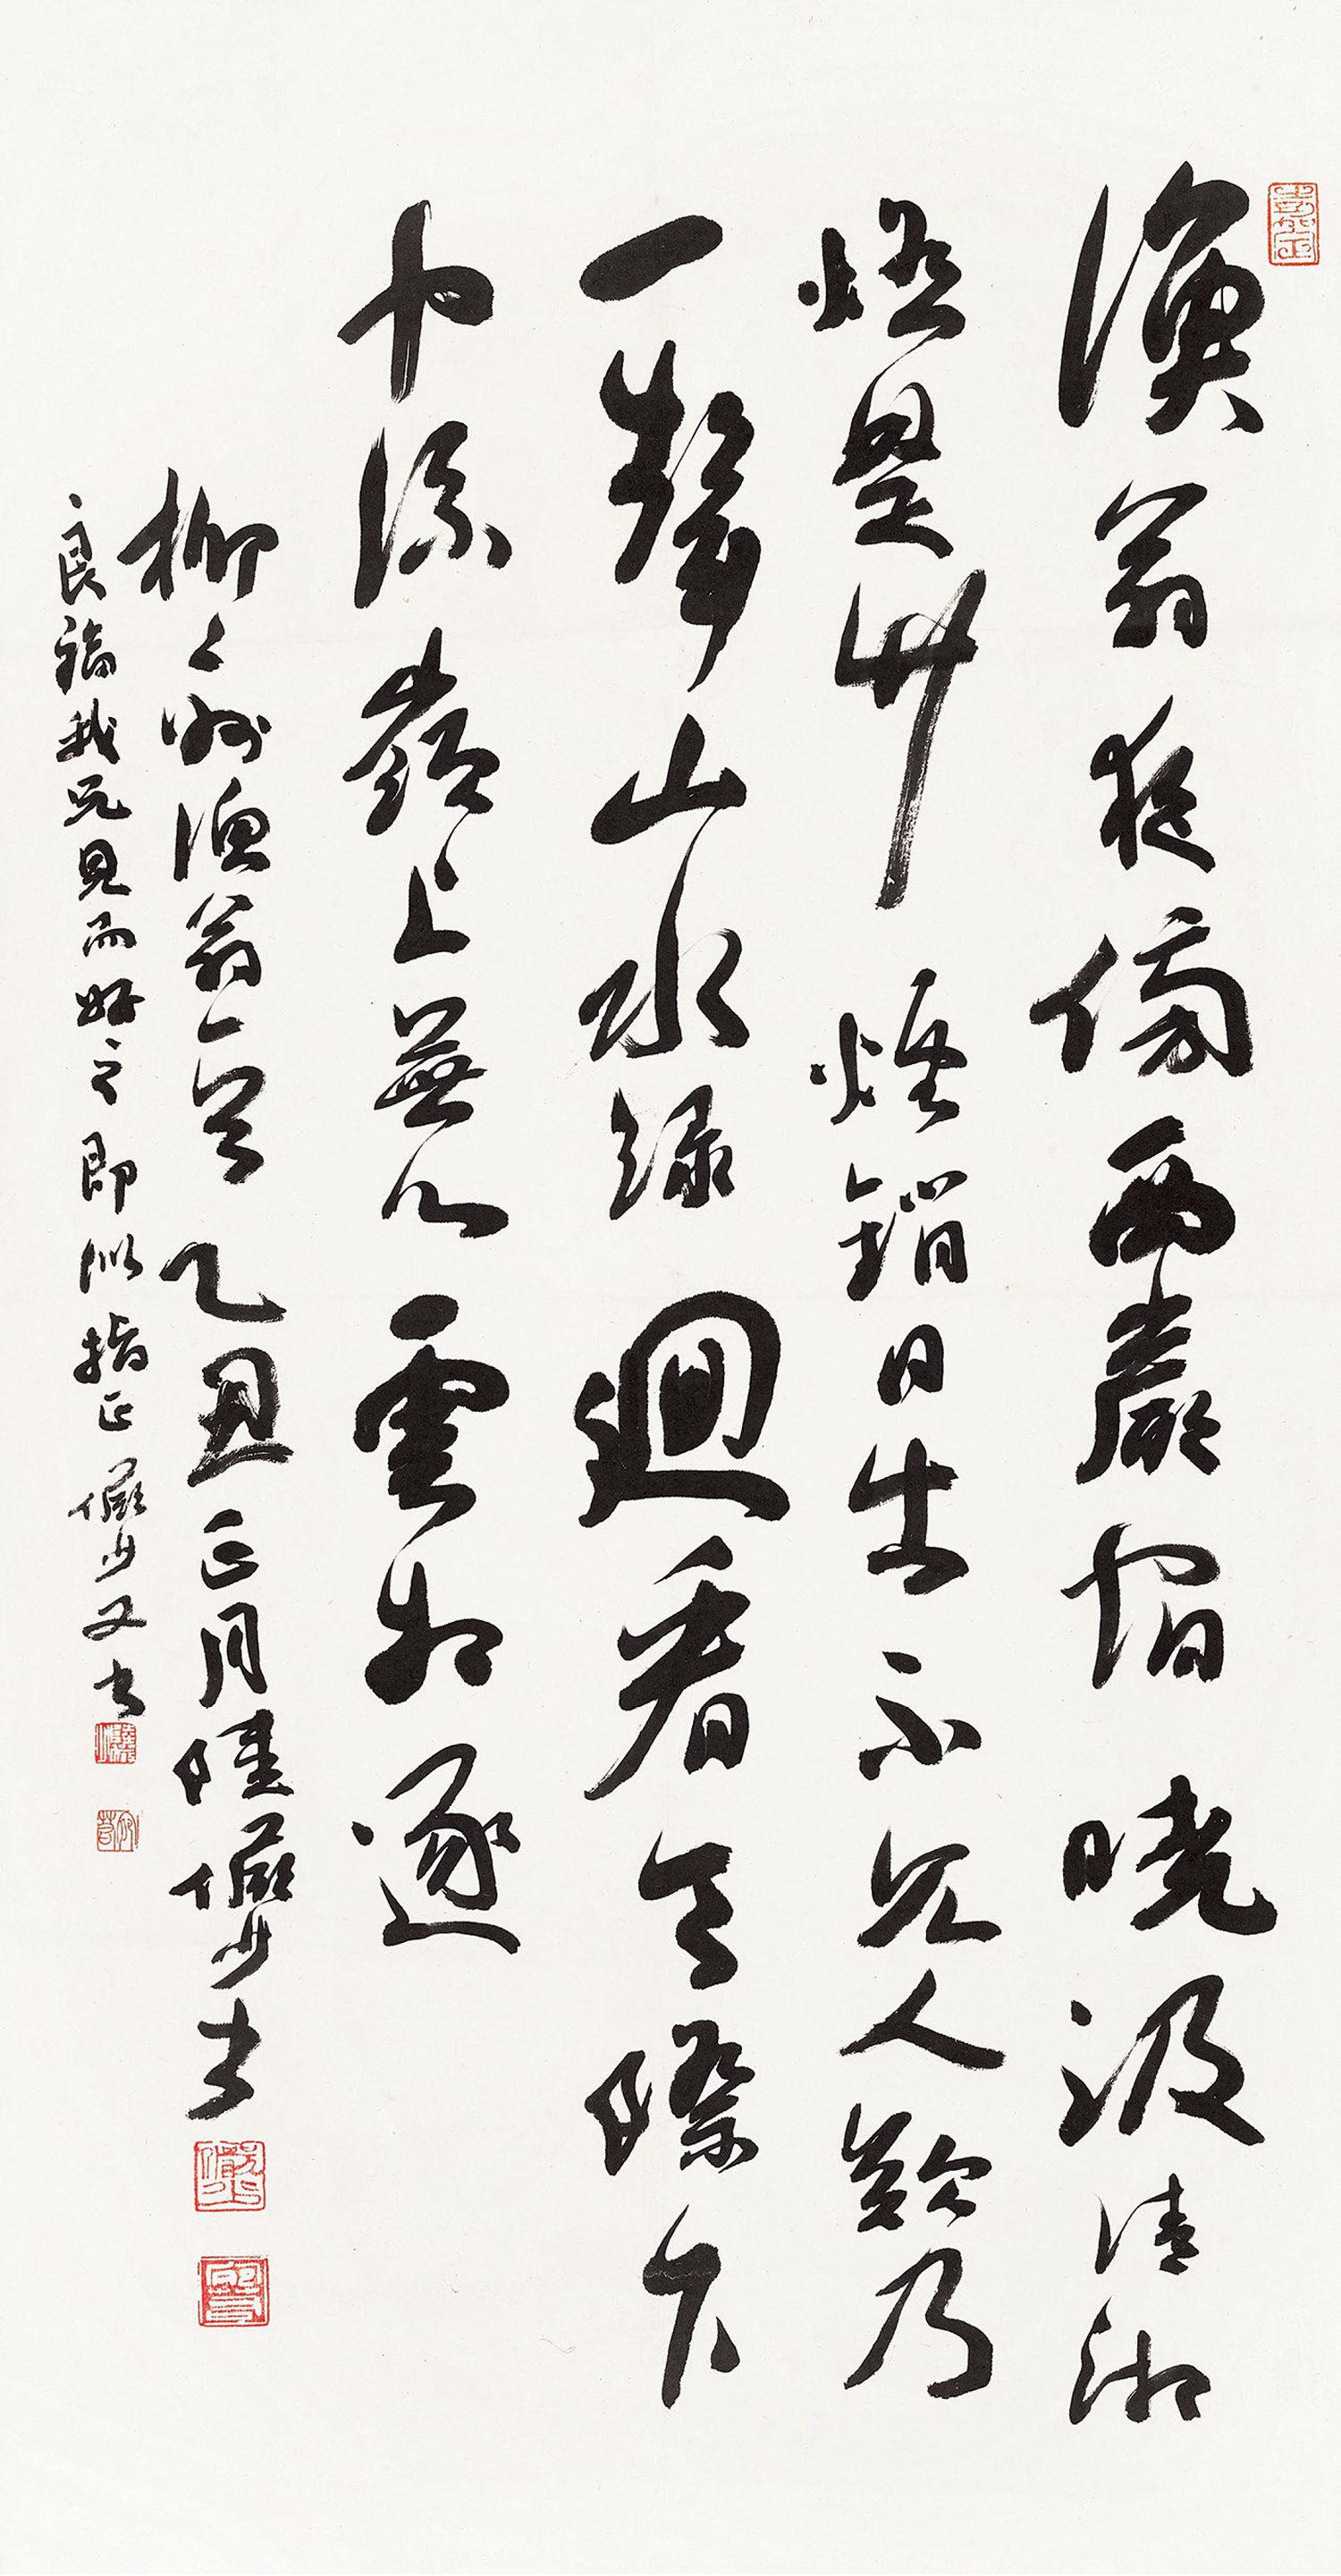 漁翁夜傍西巖宿曉汲清湘
燃楚竹煙銷日出不見人欸乃
一聲山水綠迴看天際下
中流巖上無心雲相逐
柳〻州漁翁一首乙丑正月陸儼少書
良我兄見而好之即似指正儼少又書